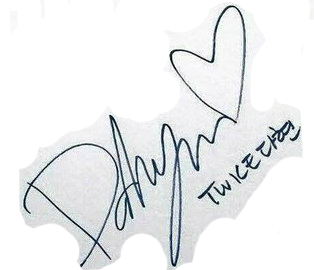 Dahyun
TWICE 다현